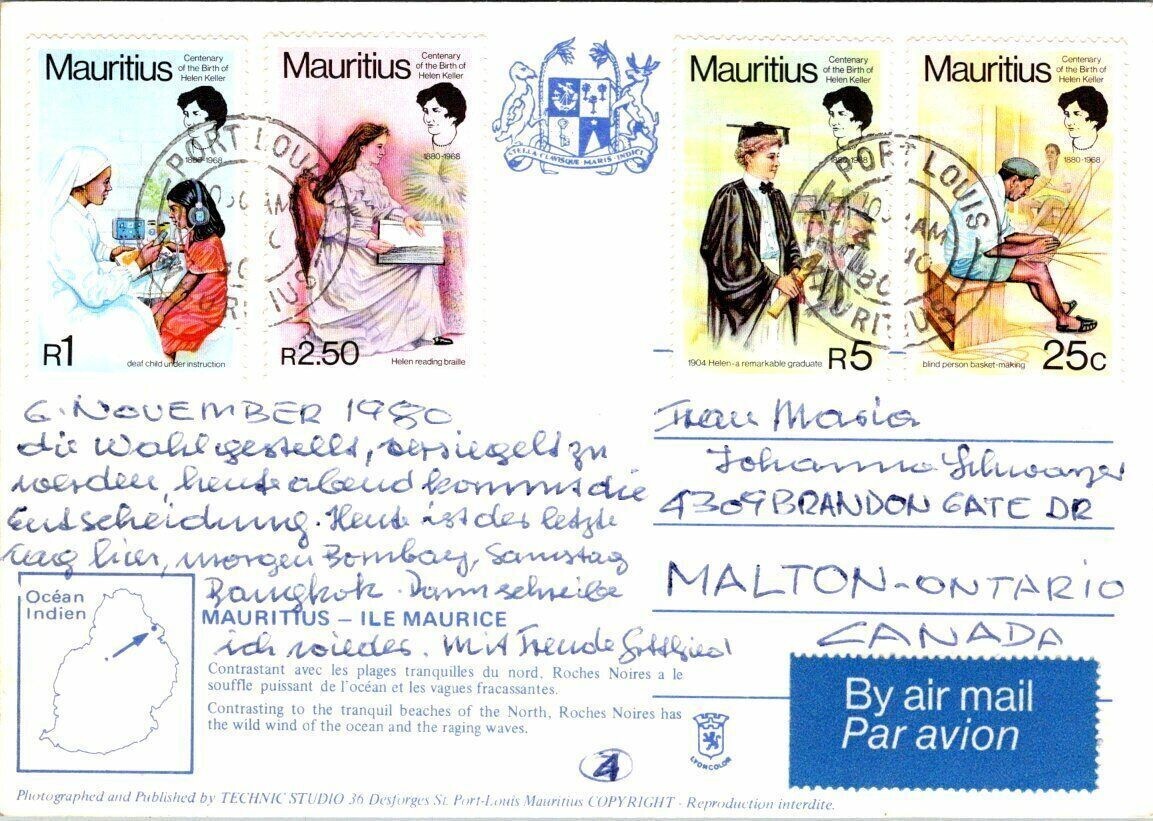 Mauritius
Centenary
of the Birth of
Helen Keller
1880-1968
R1
deaf child under instruction
Mauritius
Centenary
of the Birth of
Helen Keller
1880-1968
R2.50
Helen reading braille
STELLA CLAVISQUE MARIS INDICI
Mauritius
Centenary
of the Birth of
Helen Keller
1880-1968
1904 Helen-a remarkable graduate
R5
Mauritius
Centenary
of the Birth of
Helen Keller
1880-1968
blind person basket-making
25c
PORT LOUIS
MAURITIUS
PORT LOUIS
MAURITIUS
6. NOVEMBER 1980
die Wahl gestellt, versiegelt zu
werden, heute abend kommt die
Entscheidung. Heute ist der letzte
Tag hier, morgen Bombay, Samstag
Bangkok. Dann schreibe
ich wieder. Mit Freude Gottfried
Frau Maria
Johanna Schwarzer
4309 BRANDON GATE DR
MALTON-ONTARIO
CANADA
Océan
Indien
MAURITIUS – ILE MAURICE
Contrastant avec les plages tranquilles du nord, Roches Noires a le
souffle puissant de l'océan et les vagues fracassantes.
Contrasting to the tranquil beaches of the North, Roches Noires has
the wild wind of the ocean and the raging waves.
LYONCOLOR
By air mail
Par avion
4
Photographed and Published by TECHNIC STUDIO 36 Desforges St. Port-Louis Mauritius COPYRIGHT - Reproduction interdite.